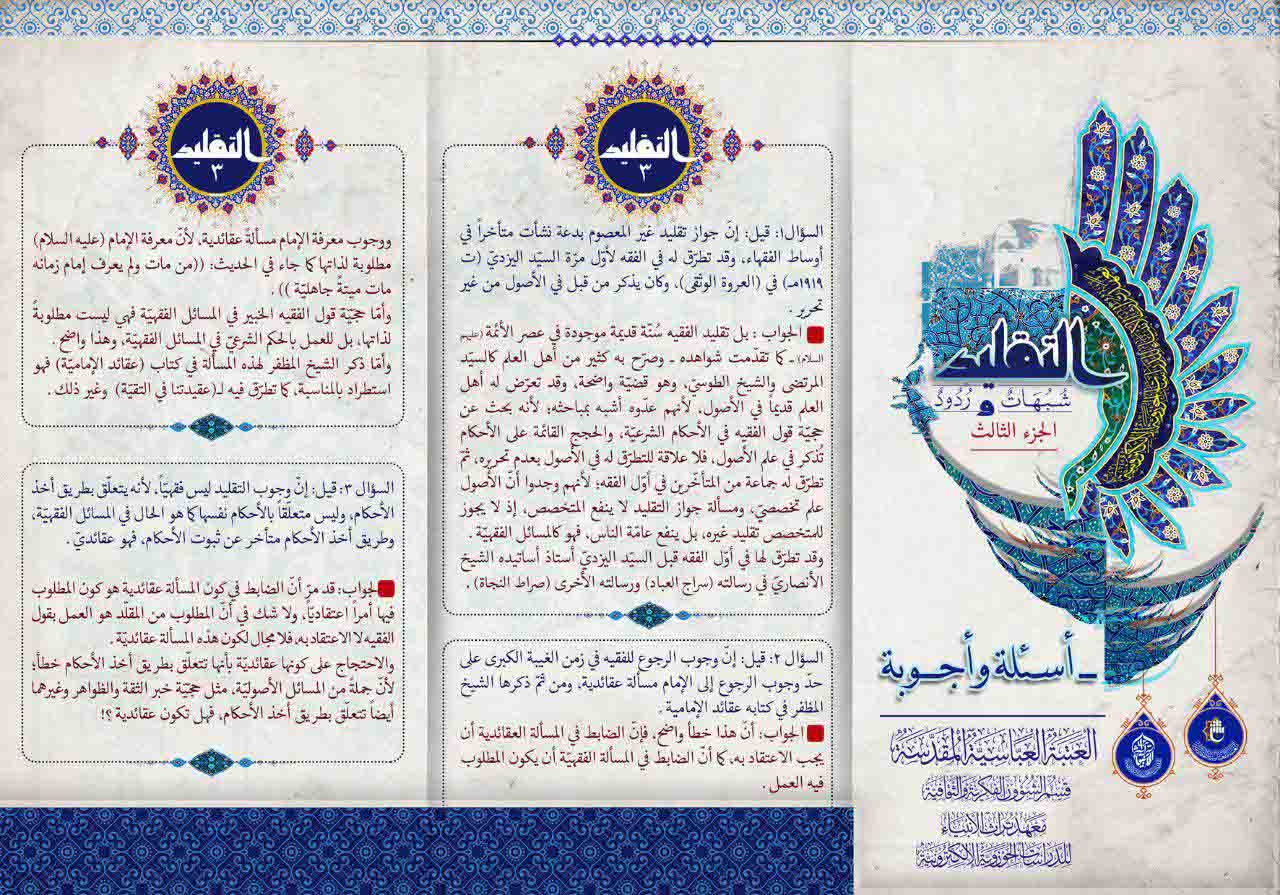 التقليد
شُبُهَاتٌ وَ رُدُودٌ
الجزء الثالث
ـ أسئلة وأجوبة
العتبة العباسية المقدسة
قسم الشؤون الفكرية والثقافية
معهد تراث الأنبياء
للدراسات الحوزوية الالكترونية
التقليد
٣
السؤال١: قيل: إنّ جواز تقليد غير المعصوم بدعة نشأت متأخراً في
أوساط الفقهاء، وقد تطرّق له في الفقه لأوّل مرّة السيّد اليزديّ (ت
١٩١٩مـ) في (العروة الوثقى)، وكان يذكر من قبل في الأصول من غير
تحرير .
الجواب : بل تقليد الفقيه سُنّة قديمة موجودة في عصر الأئمّة (عليهم
السلام) ـ كما تقدّمت شواهده ـ وصرّح به كثير من أهل العلم كالسيّد
المرتضى والشيخ الطوسيّ، وهو قضيّة واضحة، وقد تعرّض له أهل
العلم قديماً في الأصول، لأنهم عدّوه أشبه بمباحثه؛ لأنه بحث عن
حجيّة قول الفقيه في الأحكام الشرعيّة، والحجج القائمة على الأحكام
تُذكر في علم الأصول، فلا علاقة للتطرّق له في الأصول بعدم تحريره، ثمّ
تطرّق له جماعة من المتأخّرين في أوّل الفقه؛ لأنهم وجدوا أنّ الأصول
علم تخصصيّ، ومسألة جواز التقليد لا ينفع المتخصص، إذ لا يجوز
للمتخصص تقليد غيره، بل ينفع عامّة الناس، فهو كالمسائل الفقهيّة .
وقد تطرّق لها في أوّل الفقه قبل السيّد اليزديّ أستاذ أساتيذه الشيخ
الأنصاريّ في رسالته (سراج العباد) ورسالته الأخرى (صراط النجاة) .
السؤال ٢: قيل: إنّ وجوب الرجوع للفقيه في زمن الغيبة الكبرى على
حدّ وجوب الرجوع إلى الإمام مسألة عقائدية، ومن ثمّ ذكرها الشيخ
المظفر في كتابه عقائد الإمامية .
الجواب: أنّ هذا خطأ واضح، فإنّ الضابط في المسألة العقائدية أن
يجب الاعتقاد به، كما أنّ الضابط في المسألة الفقهيّة أن يكون المطلوب
فيه العمل .
التقليد
٣
ووجوب معرفة الإمام مسألةٌ عقائدية، لأنّ معرفة الإمام (عليه السلام)
مطلوبة لذاتها كما جاء في الحديث: ((من مات ولم يعرف إمام زمانه
مات ميتةً جاهليّة )) .
وأمّا حجيّة قول الفقيه الخبير في المسائل الفقهيّة فهي ليست مطلوبةً
لذاتها، بل للعمل بالحكم الشرعيّ في المسائل الفقهيّة، وهذا واضح .
وأمّا ذكر الشيخ المظفر لهذه المسألة في كتاب (عقائد الإماميّة) فهو
استطراد بالمناسبة، كما تطرّق فيه لـ(عقيدتنا في التقيّة) وغير ذلك .
السؤال ٣: قيل: إنّ وجوب التقليد ليس فقهيّاً، لأنه يتعلّق بطريق أخذ
الأحكام، وليس متعلقاً بالأحكام نفسها كما هو الحال في المسائل الفقهيّة،
وطريق أخذ الأحكام متأخر عن ثبوت الأحكام، فهو عقائديّ .
الجواب: قد مرّ أنّ الضابط في كون المسألة عقائدية هو كون المطلوب
فيها أمراً اعتقاديّاً، ولا شك في أنّ المطلوب من المقلّد هو العمل بقول
الفقيه لا الاعتقاد به، فلا مجال لكون هذه المسألة عقائديّة .
والاحتجاج على كونها عقائديّة بأنها تتعلّق بطريق أخذ الأحكام خطأ؛
لأنّ جملةً من المسائل الأصوليّة، مثل حجيّة خبر الثقة والظواهر وغيرهما
أيضاً تتعلّق بطريق أخذ الأحكام، فهل تكون عقائدية ؟!